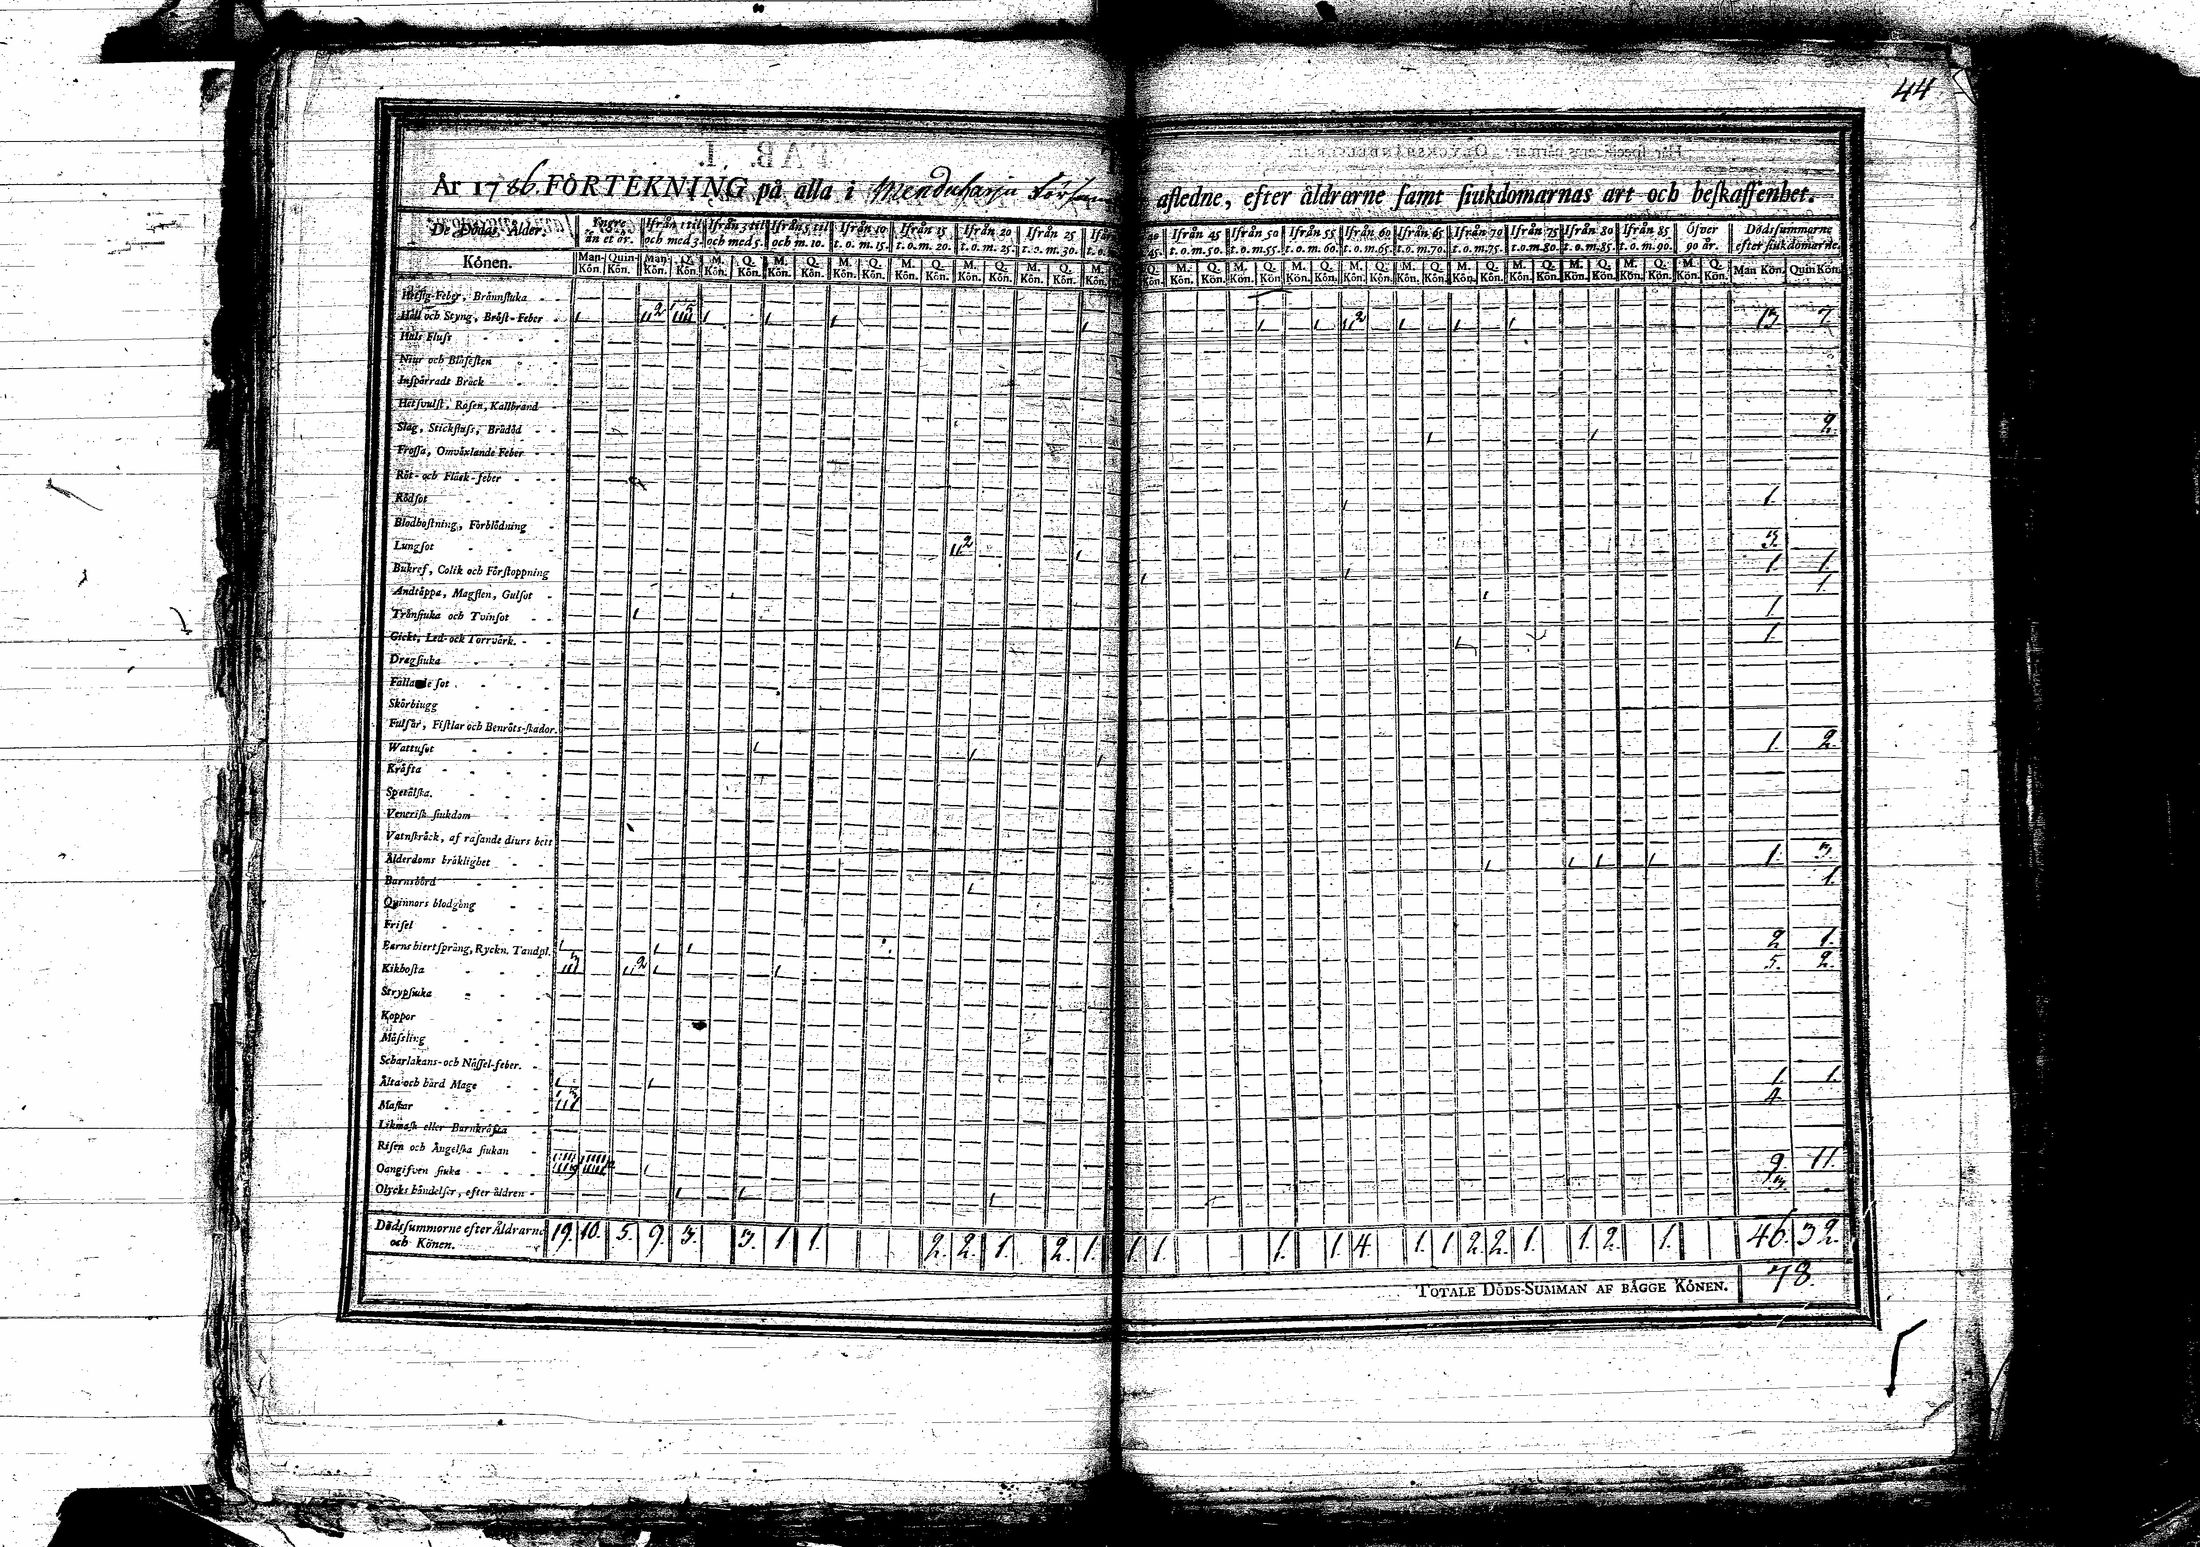 44
År 1786. FÖRTEKNING på alla i Menduharju Församl afledne, efter åldrarne samt siukdomarnas art och beskaffenhet.
De Dödas Ålder. Yngre än et år. Ifrån 1 til och med 3. Ifrån 3 til och med 5. Ifrån 5 til och m. 10. Ifrån 10 t.o.m. 15. Ifrån 15 t.o.m. 20. Ifrån 20 t.o.m. 25. Ifrån 25 t.o.m. 30. Ifrån 45 t.o.m. 50. Ifrån 50 t.o.m. 55. Ifrån 55 t.o.m. 60. Ifrån 60 t.o.m. 65. Ifrån 65 t.o.m. 70. Ifrån 70 t.o.m. 75. Ifrån 75 t.o.m. 80. Ifrån 80 t.o.m. 85. Ifrån 85 t.o.m. 90. Öfver 90 år. Dödssummorne efter siukdomarne.
Könen. Man-Kön. Quin-Kön. Man-Kön. Q. Kön. M. Kön. Q. Kön. M. Kön. Q. Kön. M. Kön. Q. Kön. M. Kön. Q. Kön. M. Kön. Q. Kön. M. Kön. Q. Kön. M. Kön. Q. Kön. M. Kön. Q. Kön. M. Kön. Q. Kön. M. Kön. Q. Kön. M. Kön. Q. Kön. M. Kön. Q. Kön. M. Kön. Q. Kön. M. Kön. Q. Kön. M. Kön. Q. Kön. M. Kön. Q. Kön. M. Kön. Q. Kön. Man Kön. Quin Kön.
Hetsig-Feber, Brännsiuka
Håll och Styng, Bröst-Feber 1 2 5 1 1 1 1 1 1 2 1 1 1 13 7
Hals Fluss
Niur och Blåsesten
Inspärradt Bråck
Hetsvulst, Rosen, Kallbrand
Slag, Stickfluss, Brådöd 1 1 2.
Frossa, Omväxlande Feber
Röt- och Fläck-feber
Rödsot 1 1.
Blodhostning, Förblödning
Lungsot 2 1 3.
Bukref, Colik och Förstoppning 1 1 1. 1.
Andtäppa, Magsten, Gulsot 1 1.
Trånsiuka och Tvinsot 1 1.
Gickt, Led- ock Torrvärk. 1 1.
Dragsiuka
Fallande sot
Skörbiugg
Fulsår, Fistlar och Benröts-skador.
Wattusot 1 1 1 1. 2.
Kräfta
Spetälska.
Venerisk siukdom
Vatnskräck, af rasande diurs bett
Ålderdoms bräklighet 1 1 1 1 1. 3.
Barnsbörd 1 1.
Quinnors blodgång
Frisel
Barns hiertsprång, Ryckn. Tandpl. 1 1 1 2 1.
Kikhosta 3 2 1 1 5. 2.
Strypsiuka
Koppor
Mässling
Scharlakans- och Nässel-feber.
Ålta och hård Mage 1 1 1. 1.
Maskar 4
Likmask eller Barnkräfta
Risen och Ängelska siukan
Oangifven siuka 9 10 1 9. 11.
Olycks händelser, efter åldren 1 1 1 3.
Dödssummorne efter Åldrarne och Könen. 19. 10. 5. 9. 3. 3. 1 1. 2. 2. 1. 2. 1. 1 1. 1. 1. 4. 1. 1 2. 2. 1. 1. 2. 1. 46. 32.
TOTALE DÖDS-SUMMAN AF BÄGGE KÖNEN. 78.